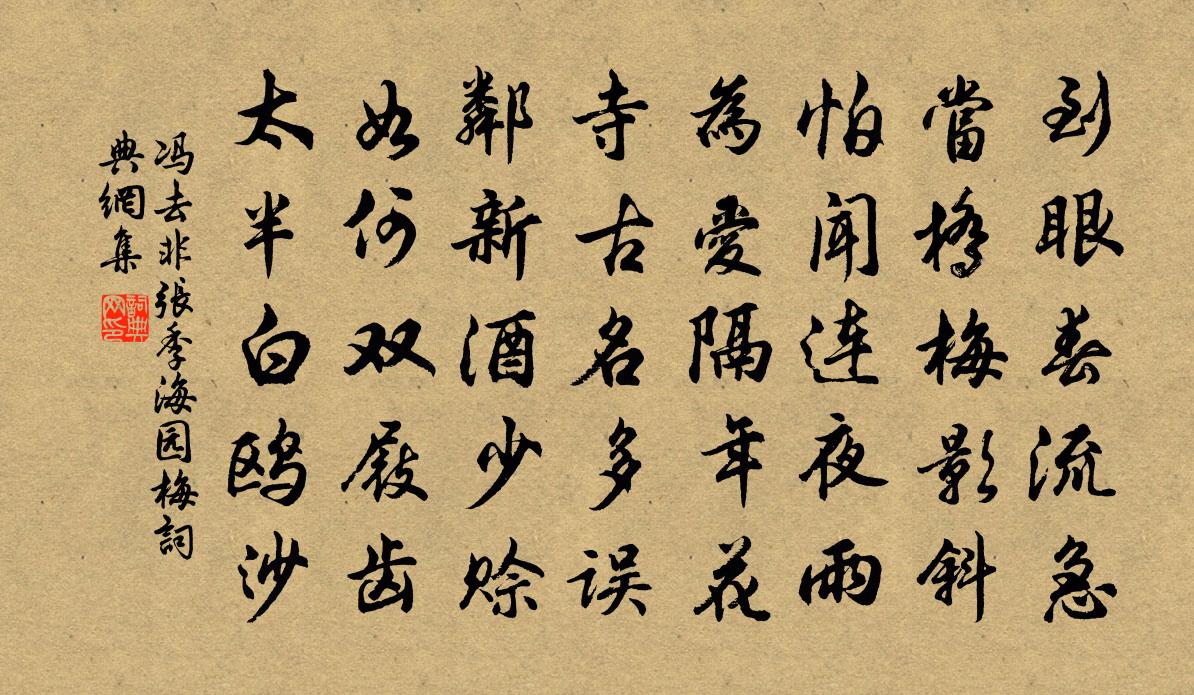 到眼春流急
當橋梅影斜
怕闻連夜雨
為愛隔年花
寺古名多误
鄰新酒少赊
如何双屐齿
太半白鸥沙
冯去非張季海园梅詞
典網集
詞典网印